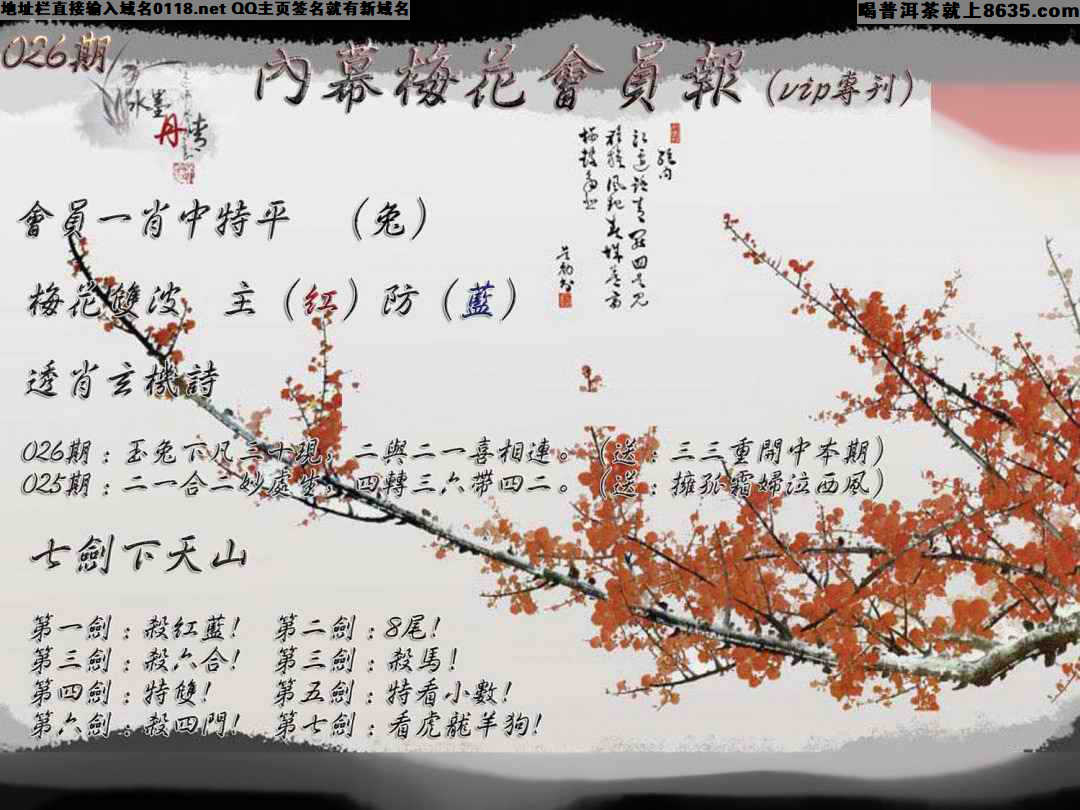 地址栏直接输入域名0118.net QQ主页签名就有新域名
喝普洱茶就上8635.com
026期
水墨丹青
內幕梅花會員報(vip專刊)
會員一肖中特平 （兔）
梅花雙波 主（紅）防（藍）
透肖玄機詩
026期：玉兔下凡三十現，二與二一喜相連。（送：三三重開中本期）
025期：二一合二妙處生，四轉三六帶四二。（送：擁孤霜婦泣西風）
七劍下天山
第一劍：殺紅藍！ 第二劍：8尾！
第三劍：殺六合！ 第三劍：殺馬！
第四劍：特雙！ 第五劍：特看小數！
第六劍：殺四門！ 第七劍：看虎龍羊狗！